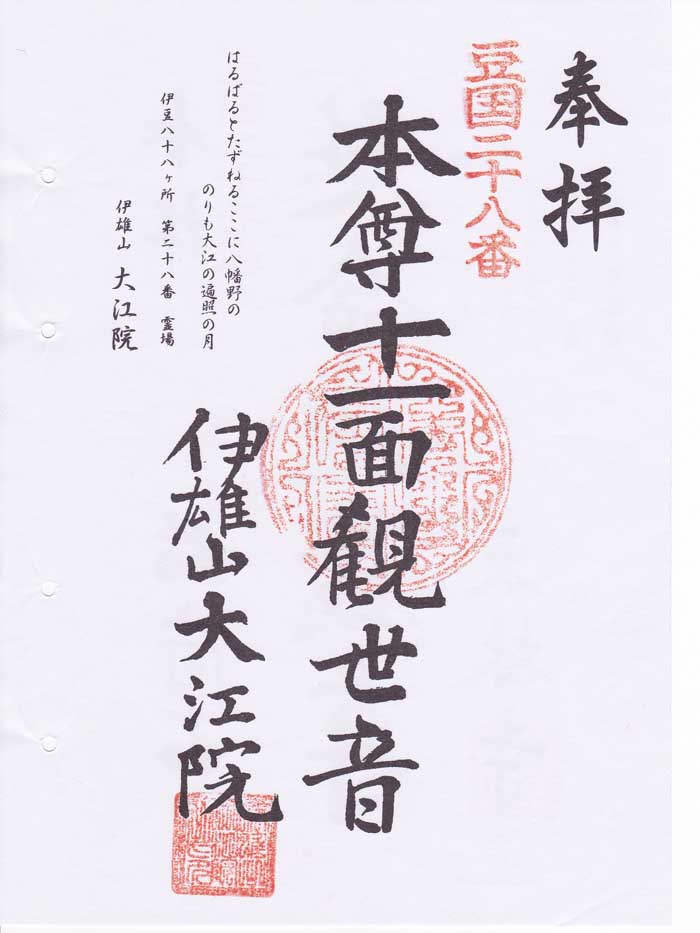 奉拝
豆国二十八番
本尊十一面観世音
伊雄山大江院
はるばるとたずねるここに八幡野の
のりも大江の遍照の月
伊豆八十八ヶ所 第二十八番 霊場
伊雄山 大江院